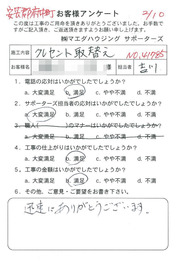 安芸郡府中町 お客様アンケート 2/10
この度は工事のご用命を頂きありがとうございました。お手数で
すがご記入頂き、ご返送頂きますようお願い申し上げます。
㈱マエダハウジング サポーターズ
施工内容 クレセント取替え NO,41785
お客様名 様 担当者
1．電話の応対はいかがでしたでしょうか？
a．大変満足 b．満足 c．やや不満 d．不満
2．サポーターズ担当者の応対はいかがでしたでしょうか？
a．大変満足 b．満足 c．やや不満 d．不満
3．職人のマナーはいかがでしたでしょうか？
a．大変満足 b．満足 c．やや不満 d．不満
4．工事の仕上がりはいかがでしたでしょうか？
a．大変満足 b．満足 c．やや不満 d．不満
5．工事の金額はいかがでしたでしょうか？
a．大変満足 b．満足 c．やや不満 d．不満
6．その他、ご意見・ご要望をお書き下さい。
迅速にありがとうございます。